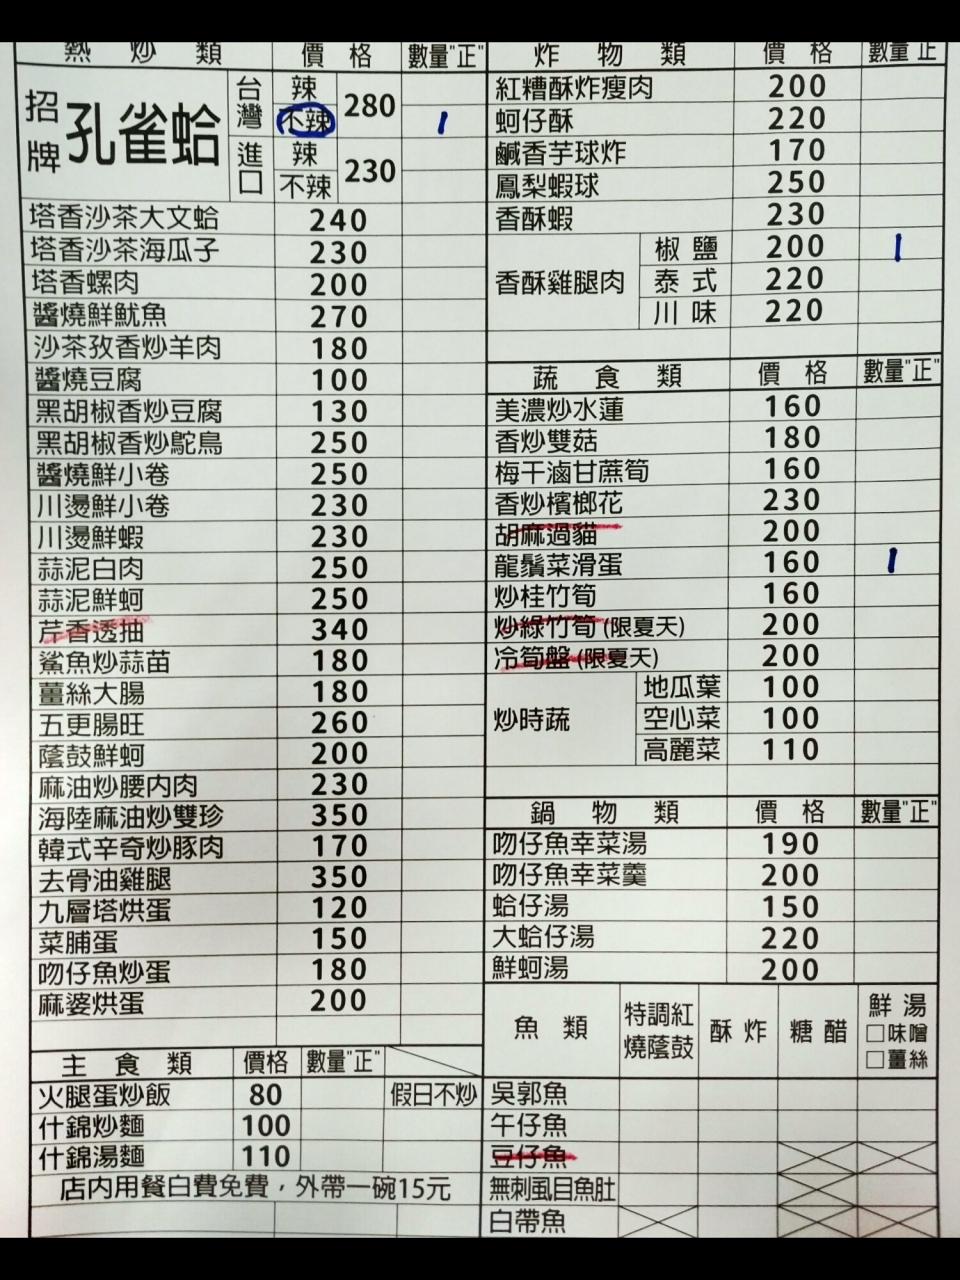 熱炒類 價格 數量"正"
招牌 孔雀蛤 台灣 辣 280
不辣 1
進口 辣 230
不辣
塔香沙茶大文蛤 240
塔香沙茶海瓜子 230
塔香螺肉 200
醬燒鮮魷魚 270
沙茶孜香炒羊肉 180
醬燒豆腐 100
黑胡椒香炒豆腐 130
黑胡椒香炒鴕鳥 250
醬燒鮮小卷 250
川燙鮮小卷 230
川燙鮮蝦 230
蒜泥白肉 250
蒜泥鮮蚵 250
芹香透抽 340
鯊魚炒蒜苗 180
薑絲大腸 180
五更腸旺 260
蔭鼓鮮蚵 200
麻油炒腰內肉 230
海陸麻油炒雙珍 350
韓式辛奇炒豚肉 170
去骨油雞腿 350
九層塔烘蛋 120
菜脯蛋 150
吻仔魚炒蛋 180
麻婆烘蛋 200
主食類 價格 數量"正"
火腿蛋炒飯 80 假日不炒
什錦炒麵 100
什錦湯麵 110
店內用餐白費免費，外帶一碗15元
炸物類 價格 數量"正"
紅糟酥炸瘦肉 200
蚵仔酥 220
鹹香芋球炸 170
鳳梨蝦球 250
香酥蝦 230
香酥雞腿肉 椒鹽 200 1
泰式 220
川味 220
蔬食類 價格 數量"正"
美濃炒水蓮 160
香炒雙菇 180
梅干滷甘蔗筍 160
香炒檳榔花 230
胡麻過貓 200
龍鬚菜滑蛋 160 1
炒桂竹筍 160
炒綠竹筍(限夏天) 200
冷筍盤(限夏天) 200
炒時蔬 地瓜葉 100
空心菜 100
高麗菜 110
鍋物類 價格 數量"正"
吻仔魚幸菜湯 190
吻仔魚幸菜羹 200
蛤仔湯 150
大蛤仔湯 220
鮮蚵湯 200
魚類 特調紅燒蔭鼓 酥炸 糖醋 鮮湯
□味噌
□薑絲
吳郭魚
午仔魚
豆仔魚
無刺虱目魚肚
白帶魚